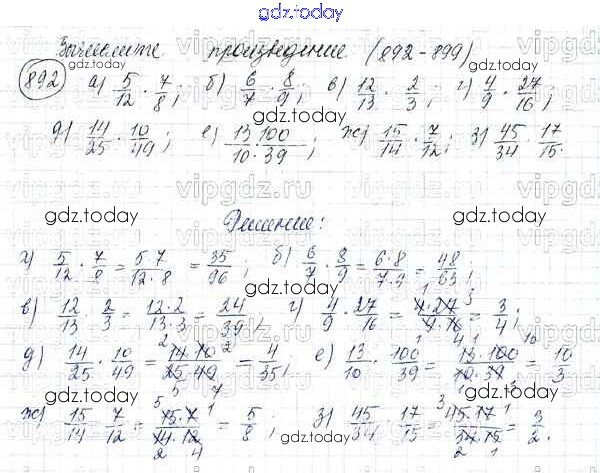 gdz.today
Вычислите произведение (892-899)
892 а) 5/12 · 7/8; б) 6/7 · 8/9; в) 12/13 · 2/3; г) 4/9 · 27/16;
д) 14/25 · 10/49; е) 13/10 · 100/39; ж) 15/14 · 7/12; з) 45/34 · 17/15.
vipgdz.ru vipgdz.ru vipgdz.ru
gdz.today gdz.today gdz.today
Решение:
а) 5/12 · 7/8 = 5·7/12·8 = 35/96; б) 6/7 · 8/9 = 6·8/7·9 = 48/63;
в) 12/13 · 2/3 = 12·2/13·3 = 24/39; г) 4/9 · 27/16 = 4·27/9·16 = 3/4;
д) 14/25 · 10/49 = 14·10/25·49 = 4/35; е) 13/10 · 100/39 = 13·100/10·39 = 10/3
ж) 15/14 · 7/12 = 15·7/14·12 = 5/8; з) 45/34 · 17/15 = 45·17/34·15 = 3/2.